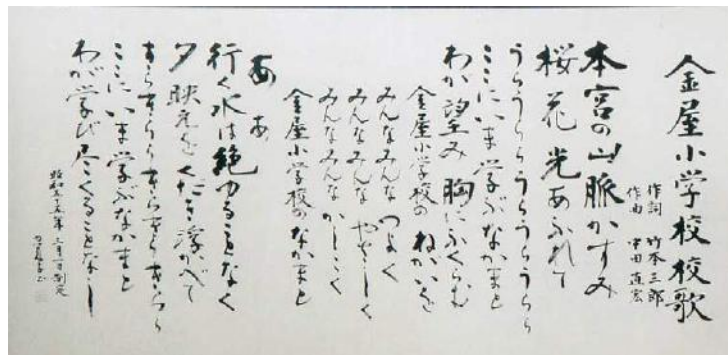 金屋小学校校歌
作詞 竹本三郎
作曲 中田直宏
本宮の山脈かすみ
桜花 光あふれて
うらうらうらうらうらうらら
ここにいま学ぶなかまと
わが望み 胸にふくらむ
金屋小学校の ねがいを
みんなみんな つよく
みんなみんな やさしく
みんなみんな かしこく
金屋小学校のなかまと
ああ
行く水は絶ゆることなく
夕映えをくだき浮かべて
きらきらきらきらきらきらら
ここにいま学ぶなかまと
わが学び尽くることなし
昭和五十五年 二月一日制定